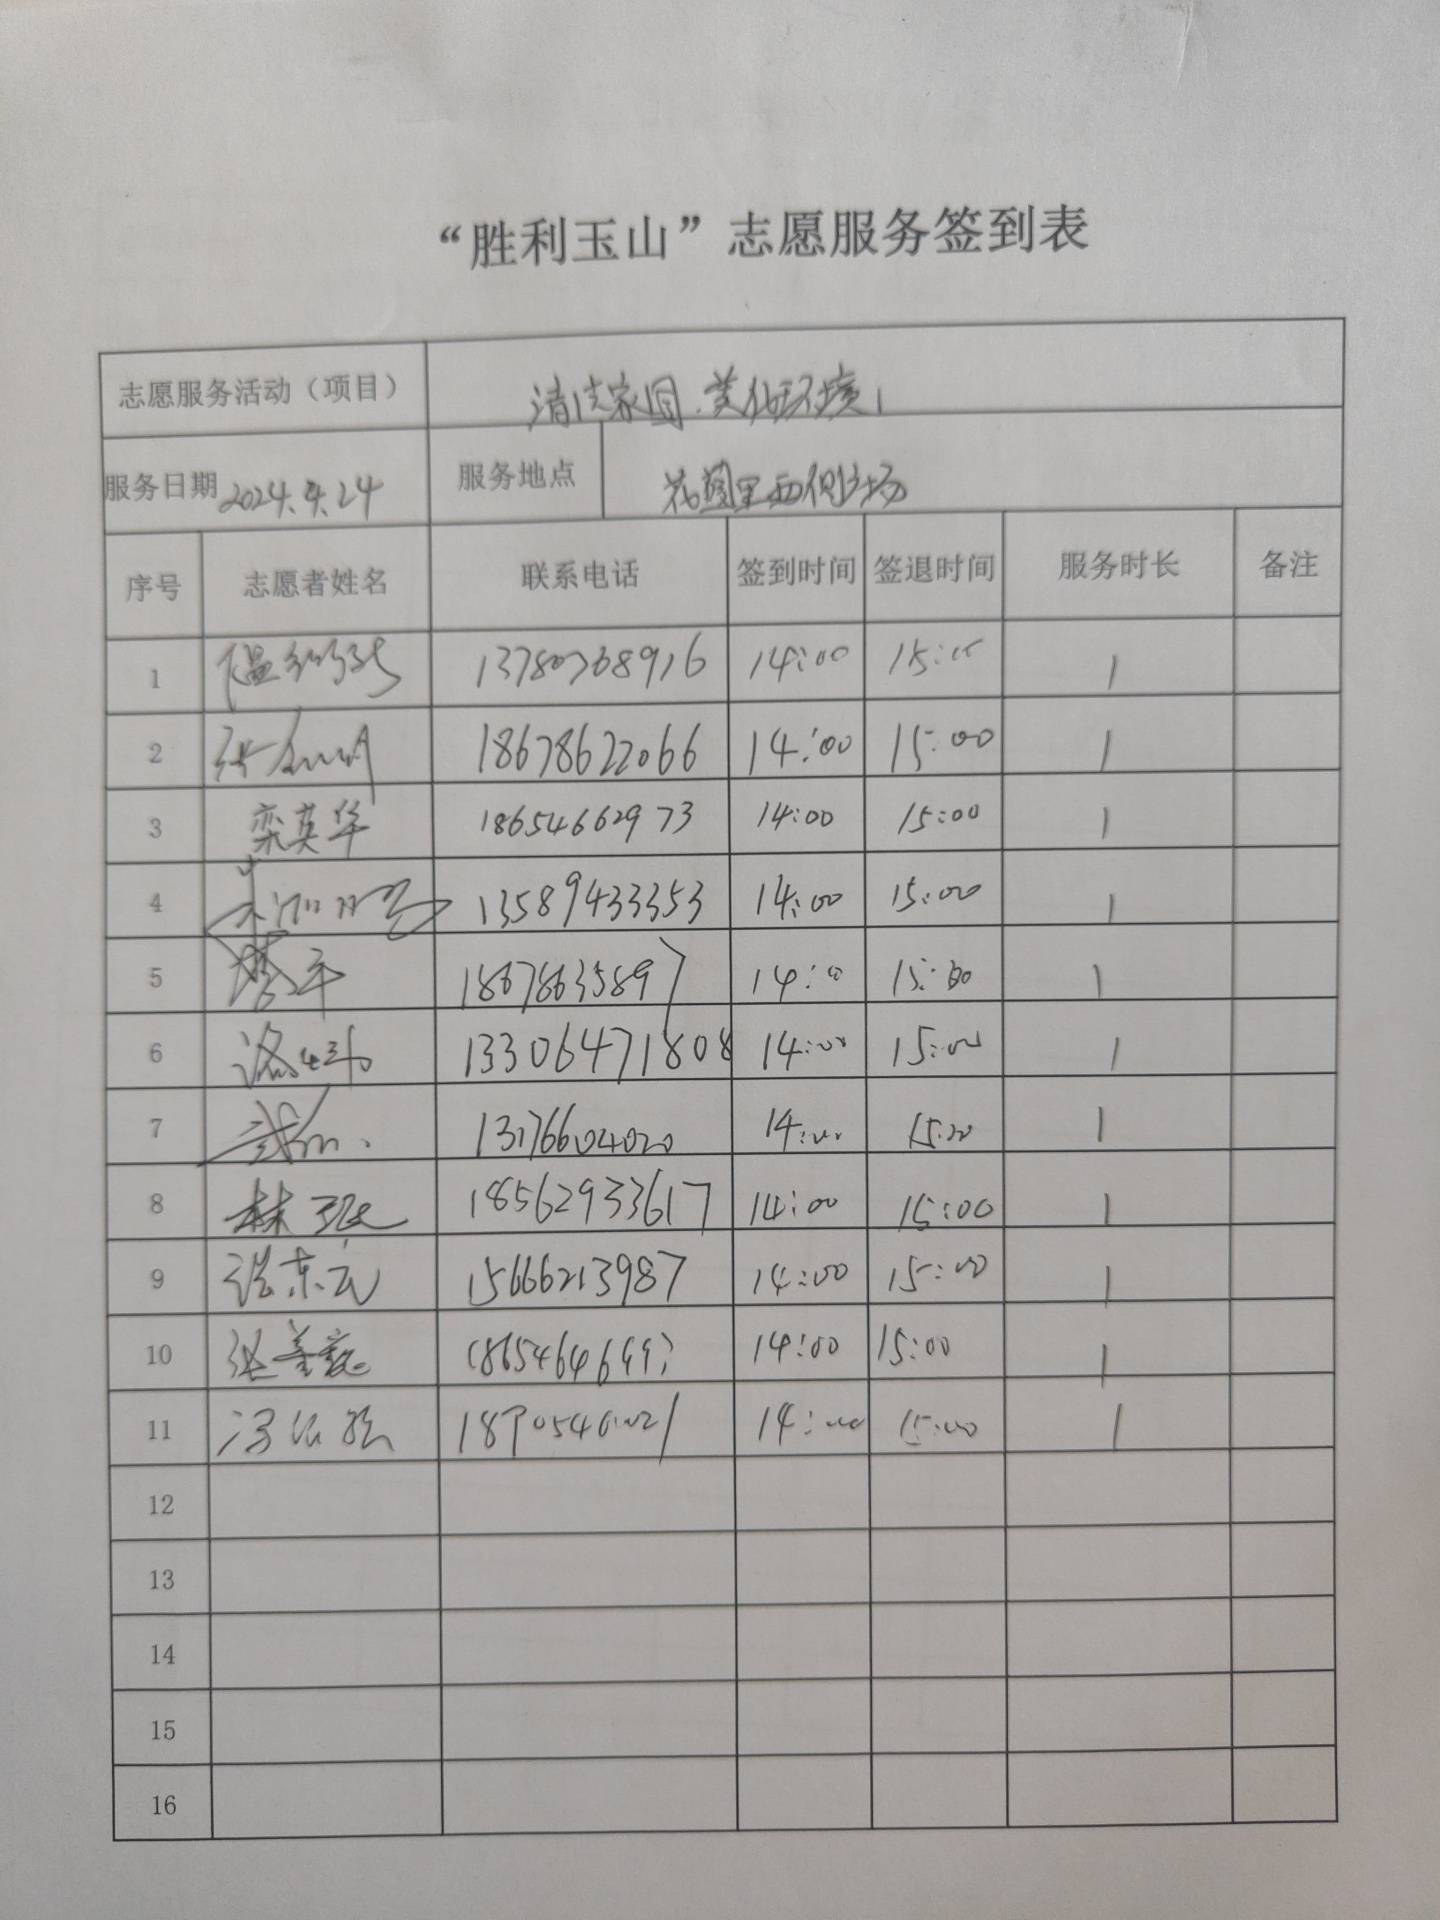 “胜利玉山”志愿服务签到表
志愿服务活动（项目） 清洁家园.美化环境
服务日期 2024.4.24 服务地点 花园里西侧广场
序号 志愿者姓名 联系电话 签到时间 签退时间 服务时长 备注
1 14:00 15:00 1
2 18678622066 14:00 15:00 1
3 栾英华 18654662973 14:00 15:00 1
4 13589433353 14:00 15:00 1
5 18678635897 14:00 15:00 1
6 13306471808 14:00 15:00 1
7 13176604020 14:00 15:00 1
8 林 18562933617 14:00 15:00 1
9 15666213987 14:00 15:00 1
10 14:00 15:00 1
11 14:00 15:00 1
12
13
14
15
16